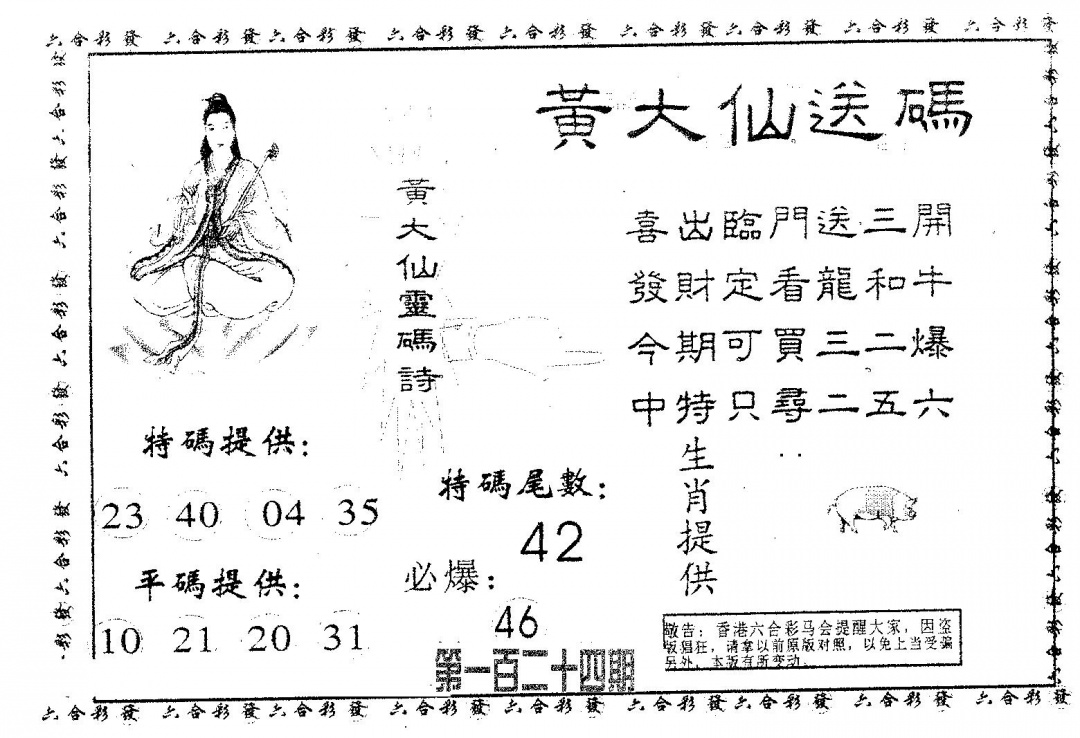 六合彩發 六合彩發六合彩發 六合彩發 六合彩發 六合彩發六合彩發 六合彩發 六合彩發
黃大仙送碼
黃大仙靈碼詩
喜出臨門送三開
發財定看龍和牛
今期可買三二爆
中特只尋二五六
特碼提供：
23 40 04 35
平碼提供：
10 21 20 31
特碼尾數：
42
必爆：
46
生肖提供
：
敬告：香港六合彩马会提醒大家，因盗
版猖狂，请拿以前原版对照，以免上当受骗
另外，本版有所变动．
第一百二十四期
六合彩發 六合彩發六合彩發 六合彩發 六合彩發 六合彩發六合彩發 六合彩發 六合彩發